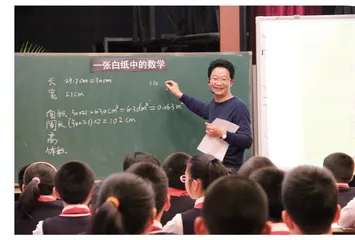 一张白纸中的数学
长 29.7cm≈30cm
宽 21cm
面积 30×21=630cm²=6.3dm²=0.063m²
周长 (30+21)×2=102cm
高
体积